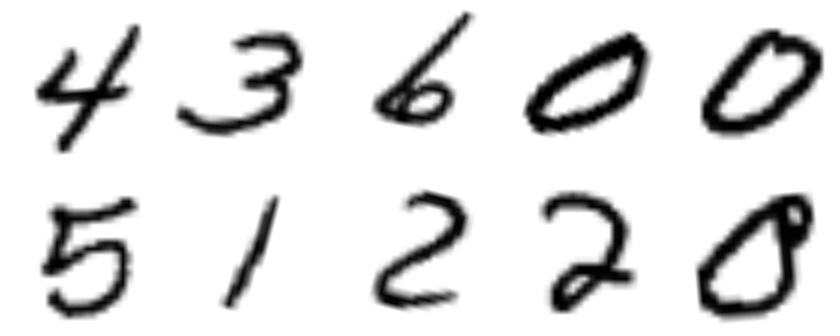 4 3 6 0 0
5 1 2 2 0